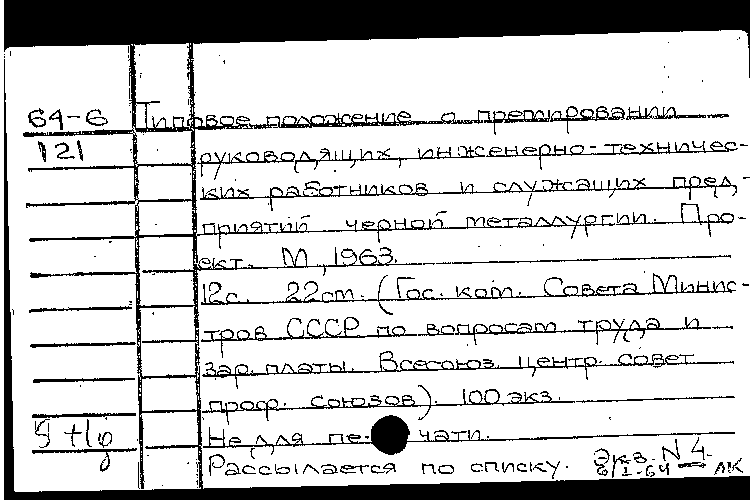 64-6 Типовое положение о премировании
121 руководящих, инженерно-техничес-
ких работников и служащих пред-
приятий черной металлургии. Про-
ект. М., 1963.
12с. 22см. (Гос. ком. Совета Минис-
тров СССР по вопросам труда и
зар. платы. Всесоюз. центр. совет
проф. союзов). 100 экз.
Не для печати.
Рассылается по списку. Экз. N 4.
6/I-64 АК